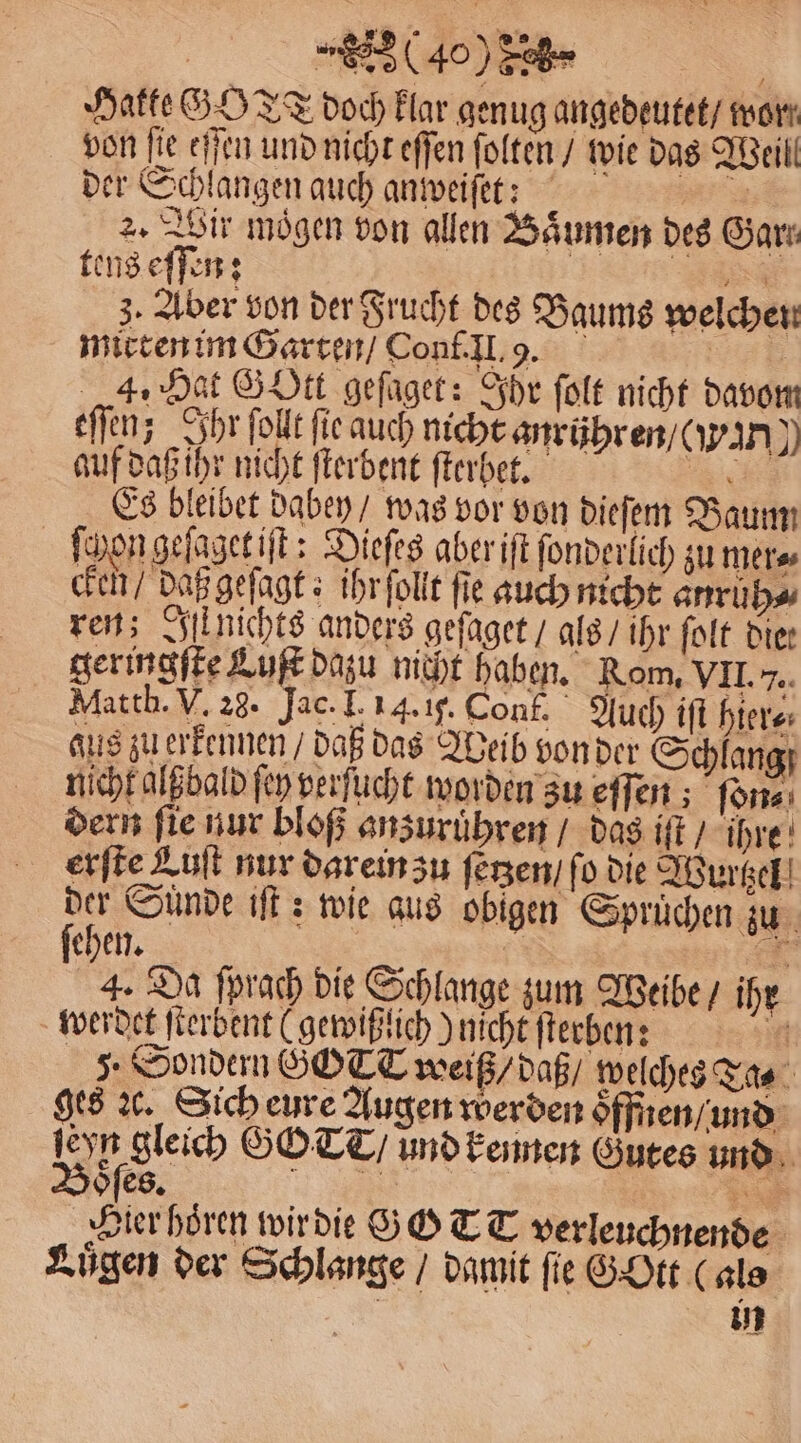 (40)
Hatte GOTT doch klar genug angedeutet/ wor⸗
von ſie eſſen und nicht eſſen ſolten / wie das Weib
der Schlangen auch anweiſet:
2. Wir moͤgen von allen Baͤumen des Gar⸗
tens eſſen:
3. Aber von der Frucht des Baums welcher
mitten im Garten/ Conf. II. 9.
4. Hat GOtt geſaget: Ihr ſolt nicht davon
eſſen; Ihr ſollt ſie auch nicht anruͤhren/
auf daß ihr nicht ſterbent ſterbet.
Es bleibet dabey / was vor von dieſem Baum
ſchon geſaget iſt: Dieſes aber iſt ſonderlich zu mer⸗
cken / daß geſagt: ihr ſollt ſie auch nicht anruͤh⸗
ren; Iſt nichts anders geſaget / als / ihr ſolt die
geringſte Luſt dazu nicht haben. Rom. VII. 7.
Matth. V. 28. Jac. I. 14. 15. Conf. Auch iſt hier⸗
aus zu erkennen / daß das Weib von der Schlang
nicht alßbald ſey verſucht worden zu eſſen; ſon⸗
dern ſie nur bloß anzuruͤhren / das iſt / ihre
erſte Luſt nur darein zu ſetzen/ ſo die Wurtzel
der Suͤnde iſt: wie aus obigen Spruͤchen zu
ſehen.
4. Da ſprach die Schlange zum Weibe / ihr
werdet ſterbent (gewißlich) nicht ſterben:
5. Sondern GOTT weiß/ daß/ welches Ta⸗
ges ꝛc. Sich eure Augen werden oͤffnen/ und
ſeyn gleich GOTT/ und kennen Gutes und
Boͤſes.
Hier hoͤren wir die GOTT verleuchnende
Luͤgen der Schlange / damit ſie GOtt (als
in